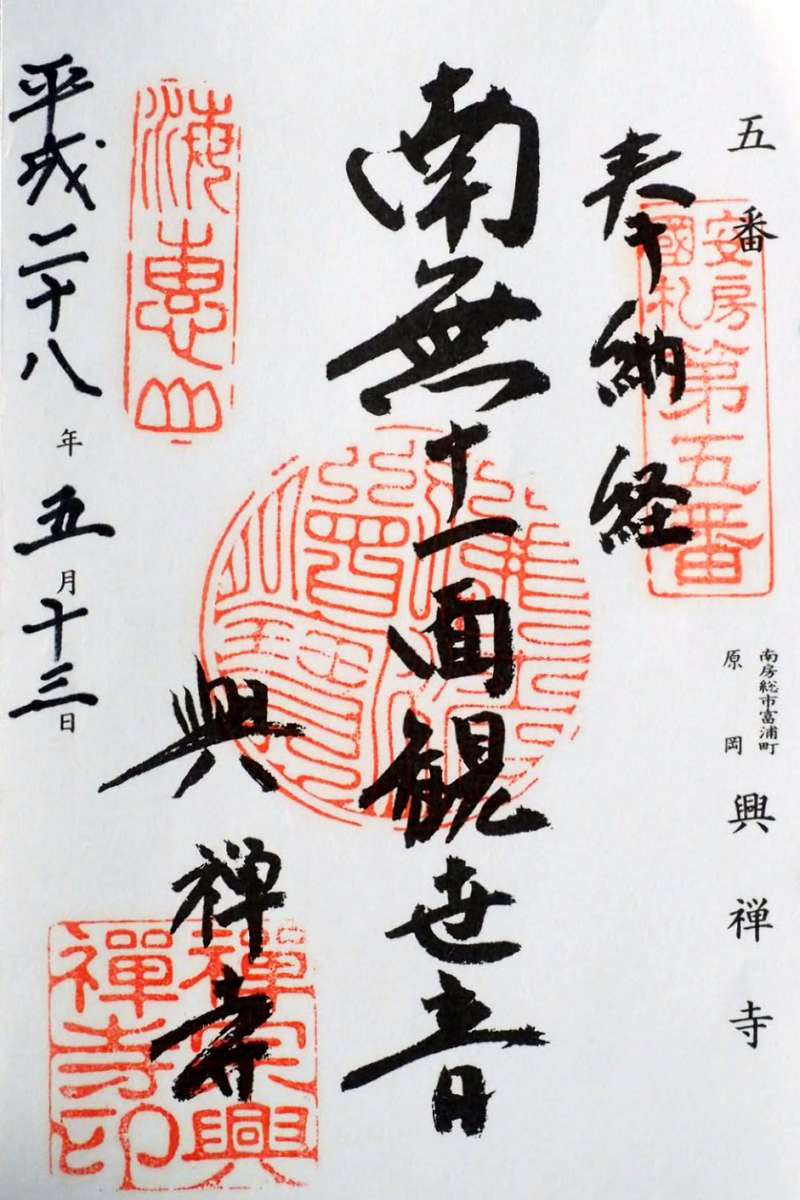 五番
南房総市富浦町
原岡 興禅寺
安房
國札
第五番
奉納経
南無十一面観世音
佛法僧寶
興禅寺
海恵山
禅宗興
禅寺印
平成二十八年五月十三日